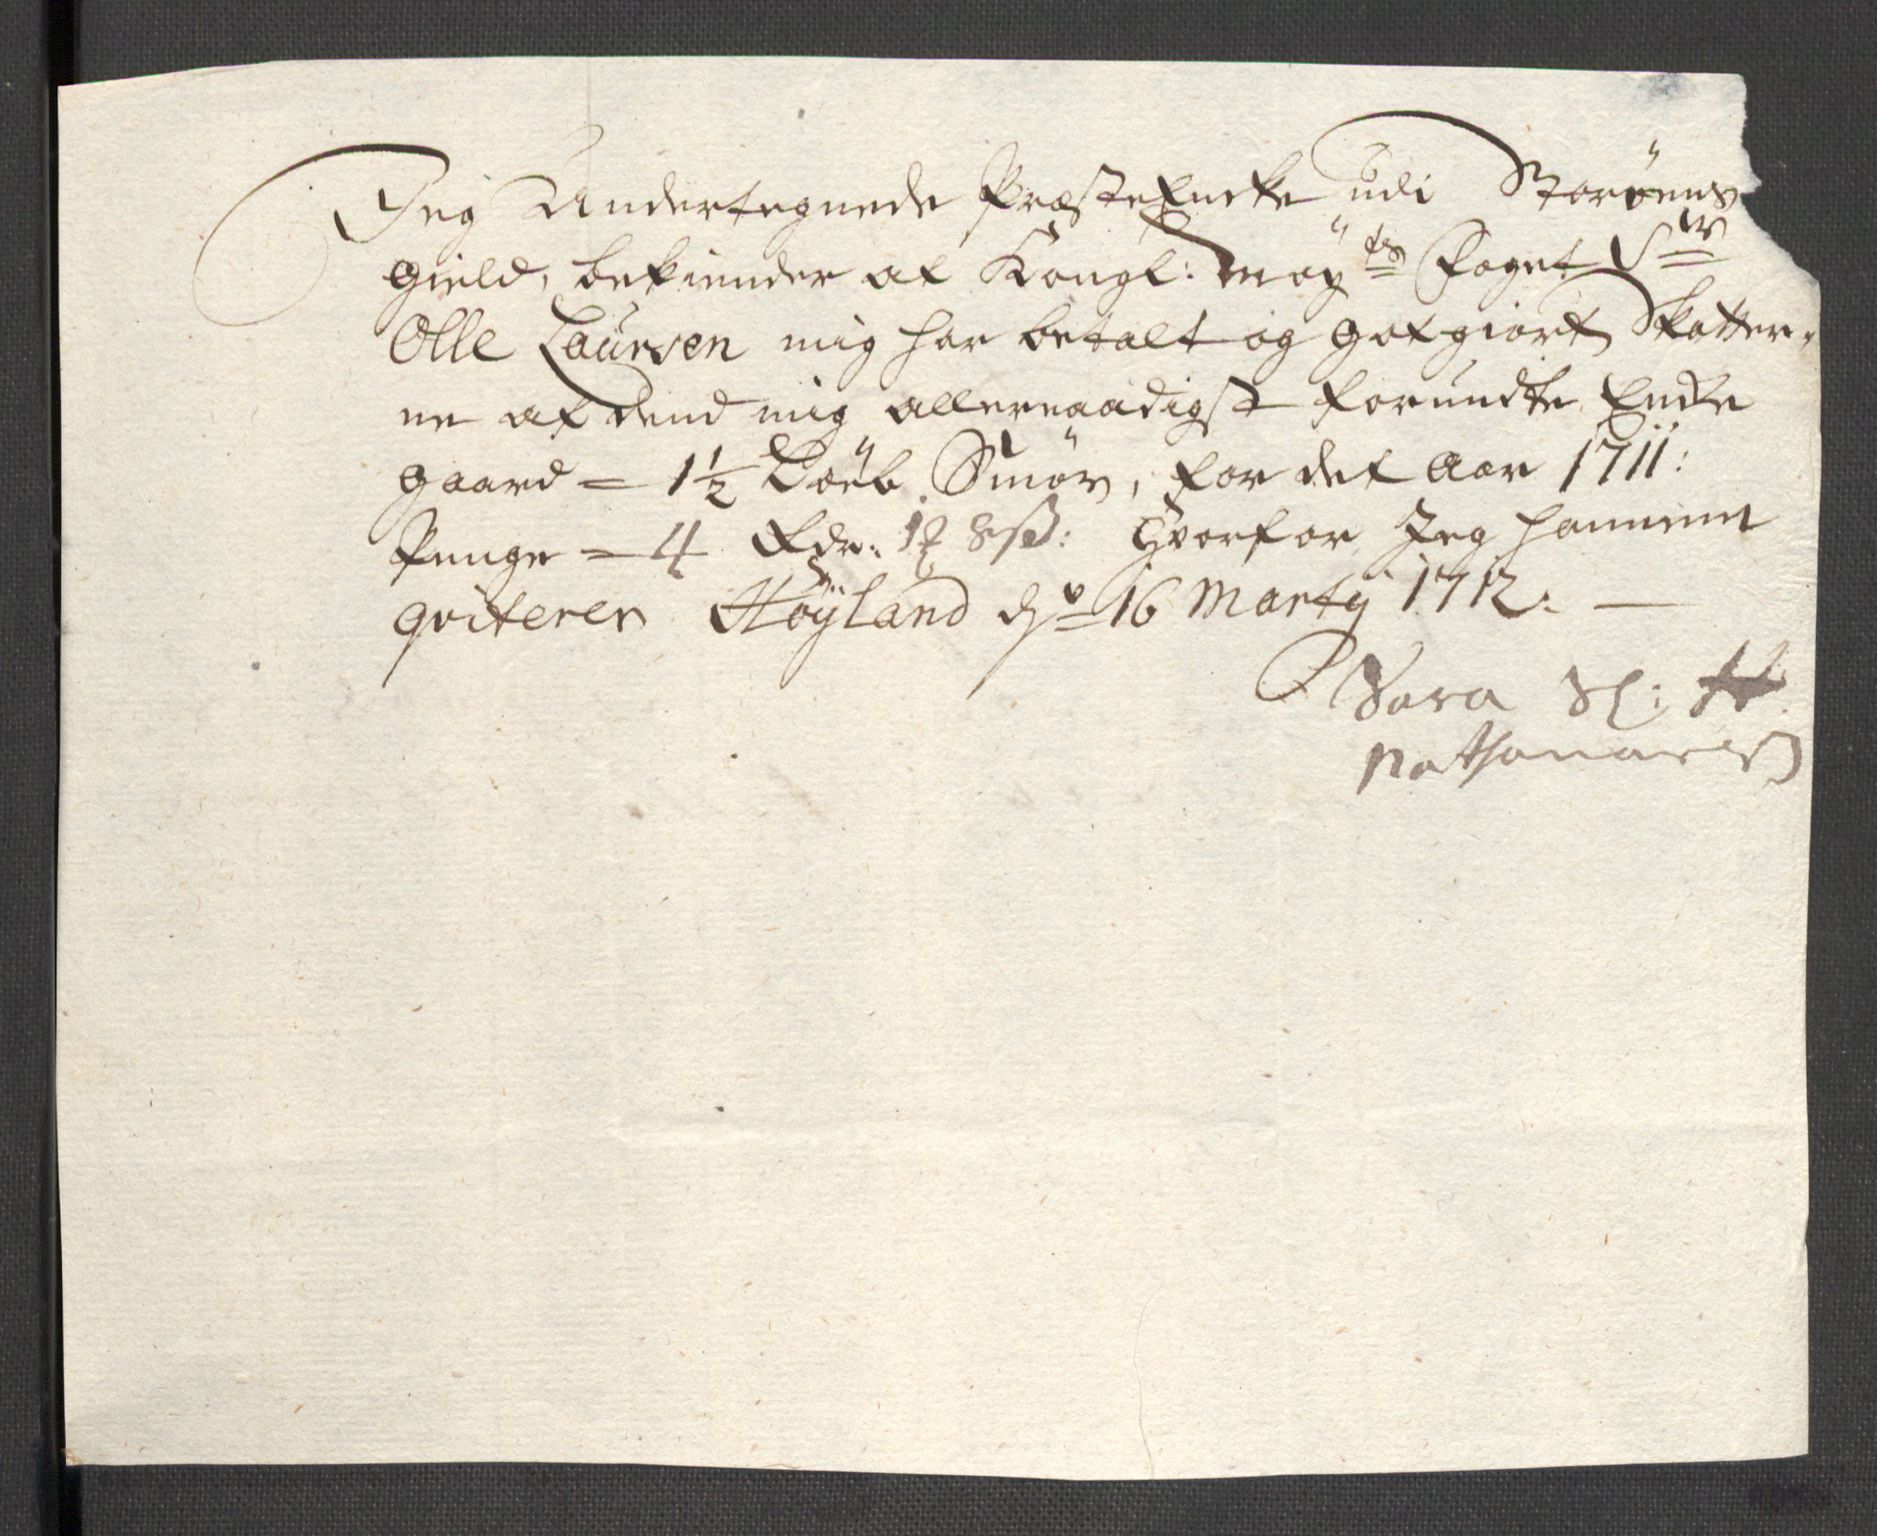 Jeg Undertegnede Præste Encke udi Storöens
gield, bekiender at Kongl: Mayts Foget Sr
Olle Laursen mig har betalt og gotgiort Skatter-
ne af dend mig allernaadigst forundte Encke
gaard = 1½ Löeb Smör, for det Aar 1711:
Penge = 4 Rdr: 12 sß: Hvorfor Jeg hannem
qviterer Höyland dn 16 Martij 1712. —
Sara Sl: H